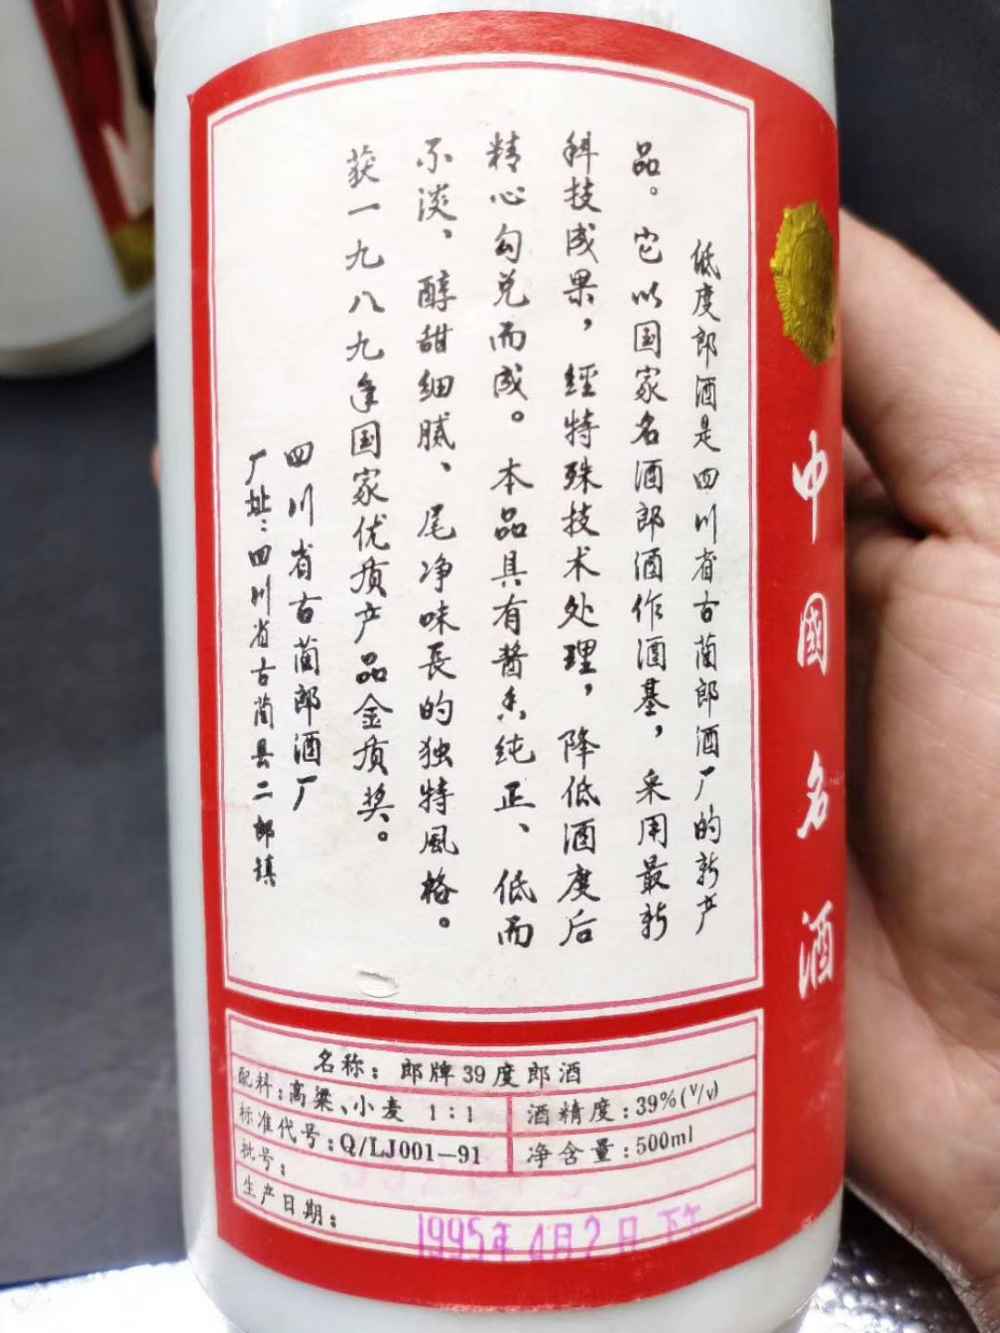 中國名酒
低度郎酒是四川省古蔺郎酒厂的新产
品。它以国家名酒郎酒作酒基，采用最新
科技成果，經特殊技术处理，降低酒度后
精心勾兑而成。本品具有酱香纯正、低而
不淡、醇甜细腻、尾净味長的独特風格。
获一九八九年国家优质产品金质奖。
四川省古蔺郎酒厂
厂址：四川省古蔺县二郎镇
名称：郎牌39度郎酒
配料：高粱、小麦 1:1 酒精度：39%(V/V)
标准代号：Q/LJ001—91 净含量：500ml
批号：
生产日期：1995年4月2日